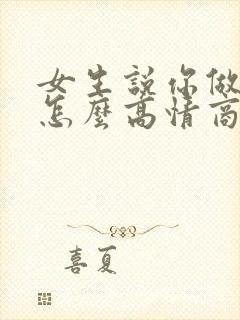 女生說你做
怎麼高情商
喜夏